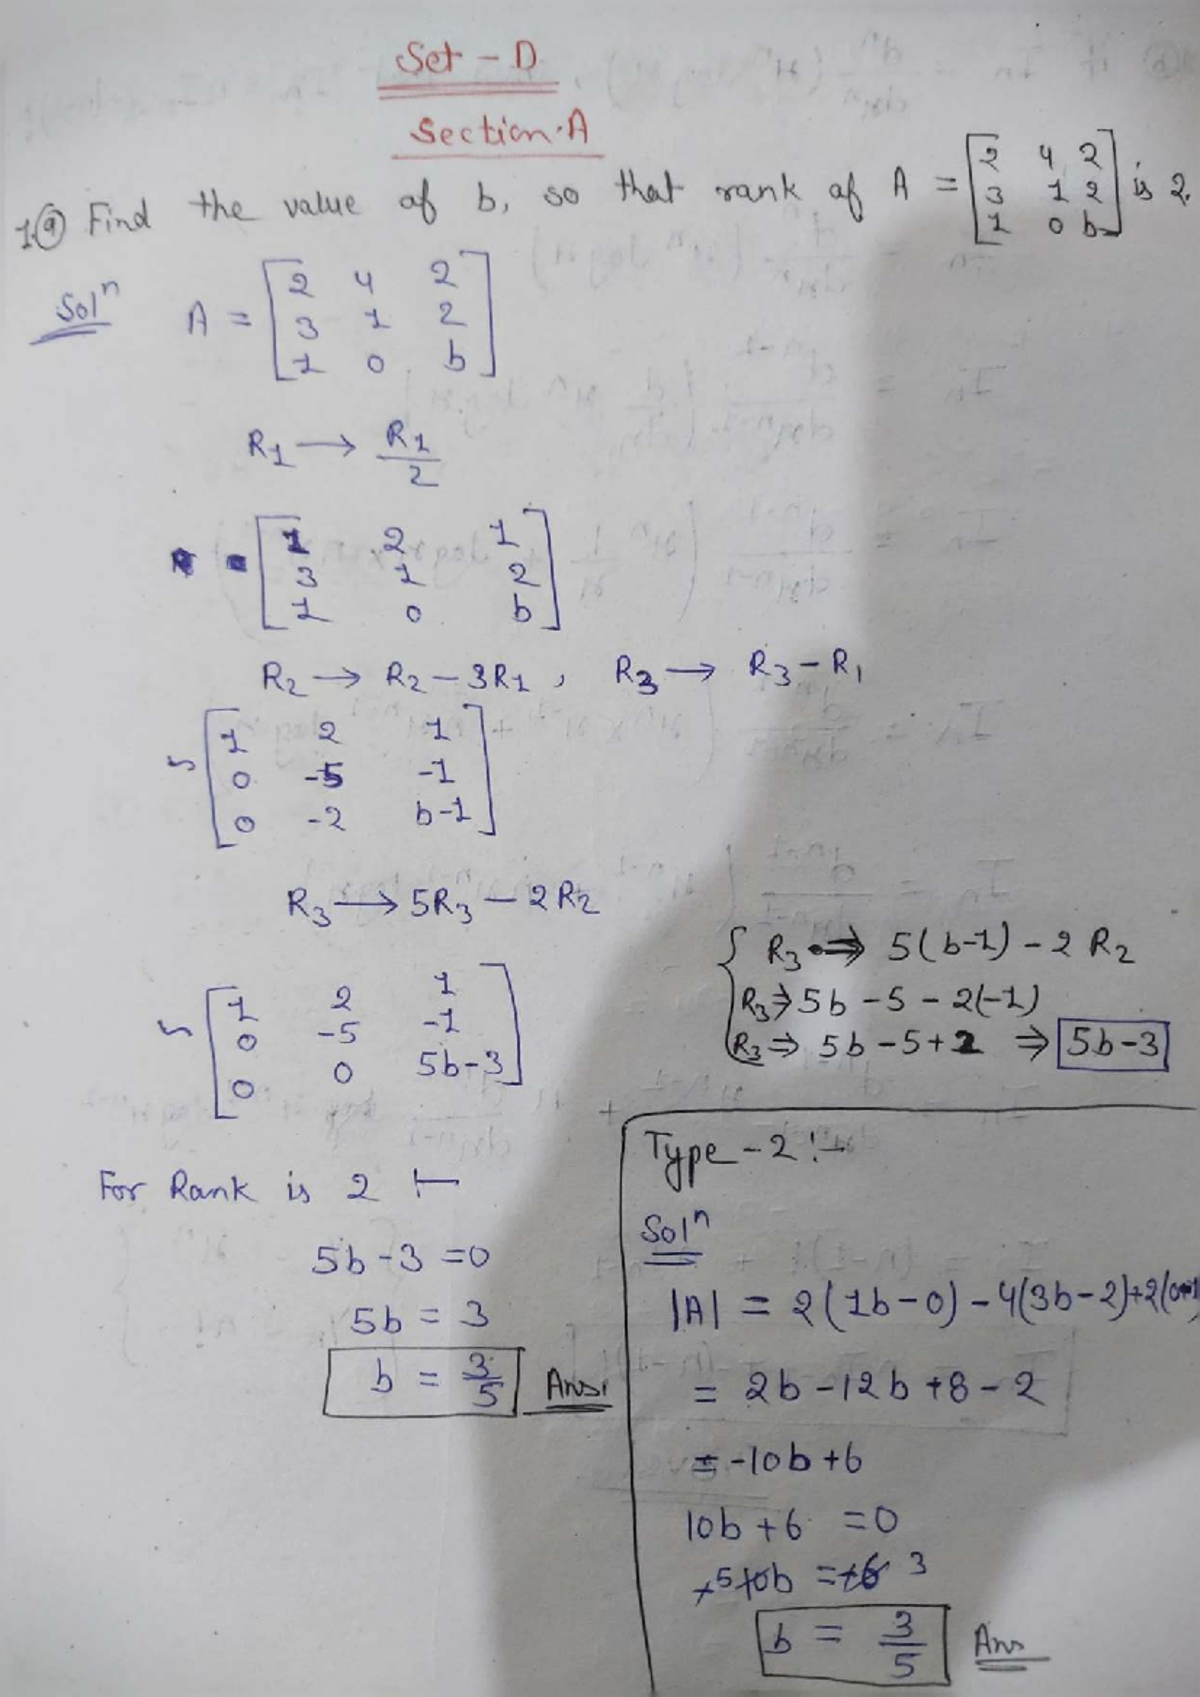 Set - D
Section·A
1.(a) Find the value of b, so that rank of A = [2 4 2; 3 1 2; 1 0 b] is 2.
Solⁿ
A = [2 4 2
3 1 2
1 0 b]
R₁ → R₁/2
[1 2 1
3 1 2
1 0 b]
R₂ → R₂ - 3R₁, R₃ → R₃ - R₁
~ [1 2 1
0 -5 -1
0 -2 b-1]
R₃ → 5R₃ - 2R₂
~ [1 2 1
0 -5 -1
0 0 5b-3]
{ R₃ ⇒ 5(b-1) - 2 R₂
R₃ ⇒ 5b - 5 - 2(-1)
R₃ ⇒ 5b - 5 + 2 ⇒ 5b-3
For Rank is 2 :-
5b - 3 = 0
5b = 3
b = 3/5 Ans.
Type - 2 :-
Solⁿ
|A| = 2(1b-0) - 4(3b-2) + 2(0-1)
= 2b - 12b + 8 - 2
= -10b + 6
10b + 6 = 0
b = 3/5 Ans